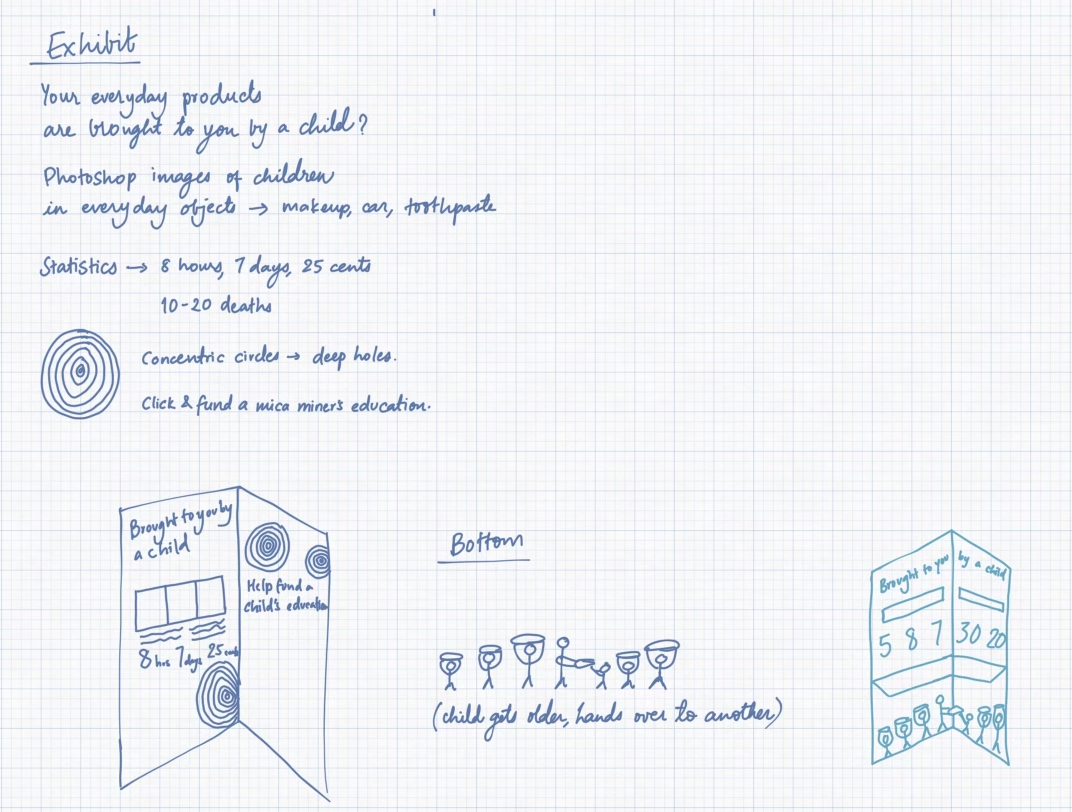 Exhibit
Your everyday products
are brought to you by a child?
Photoshop images of children
in everyday objects → makeup, car, toothpaste
Statistics → 8 hours, 7 days, 25 cents
10-20 deaths
Concentric circles → deep holes.
Click & fund a mica miner's education.
Brought to you by
a child
8 hrs 7 days 25 cents
Help fund a
child's education
Bottom
(child gets older, hands over to another)
Brought to you by a child
5 8 7 30 20